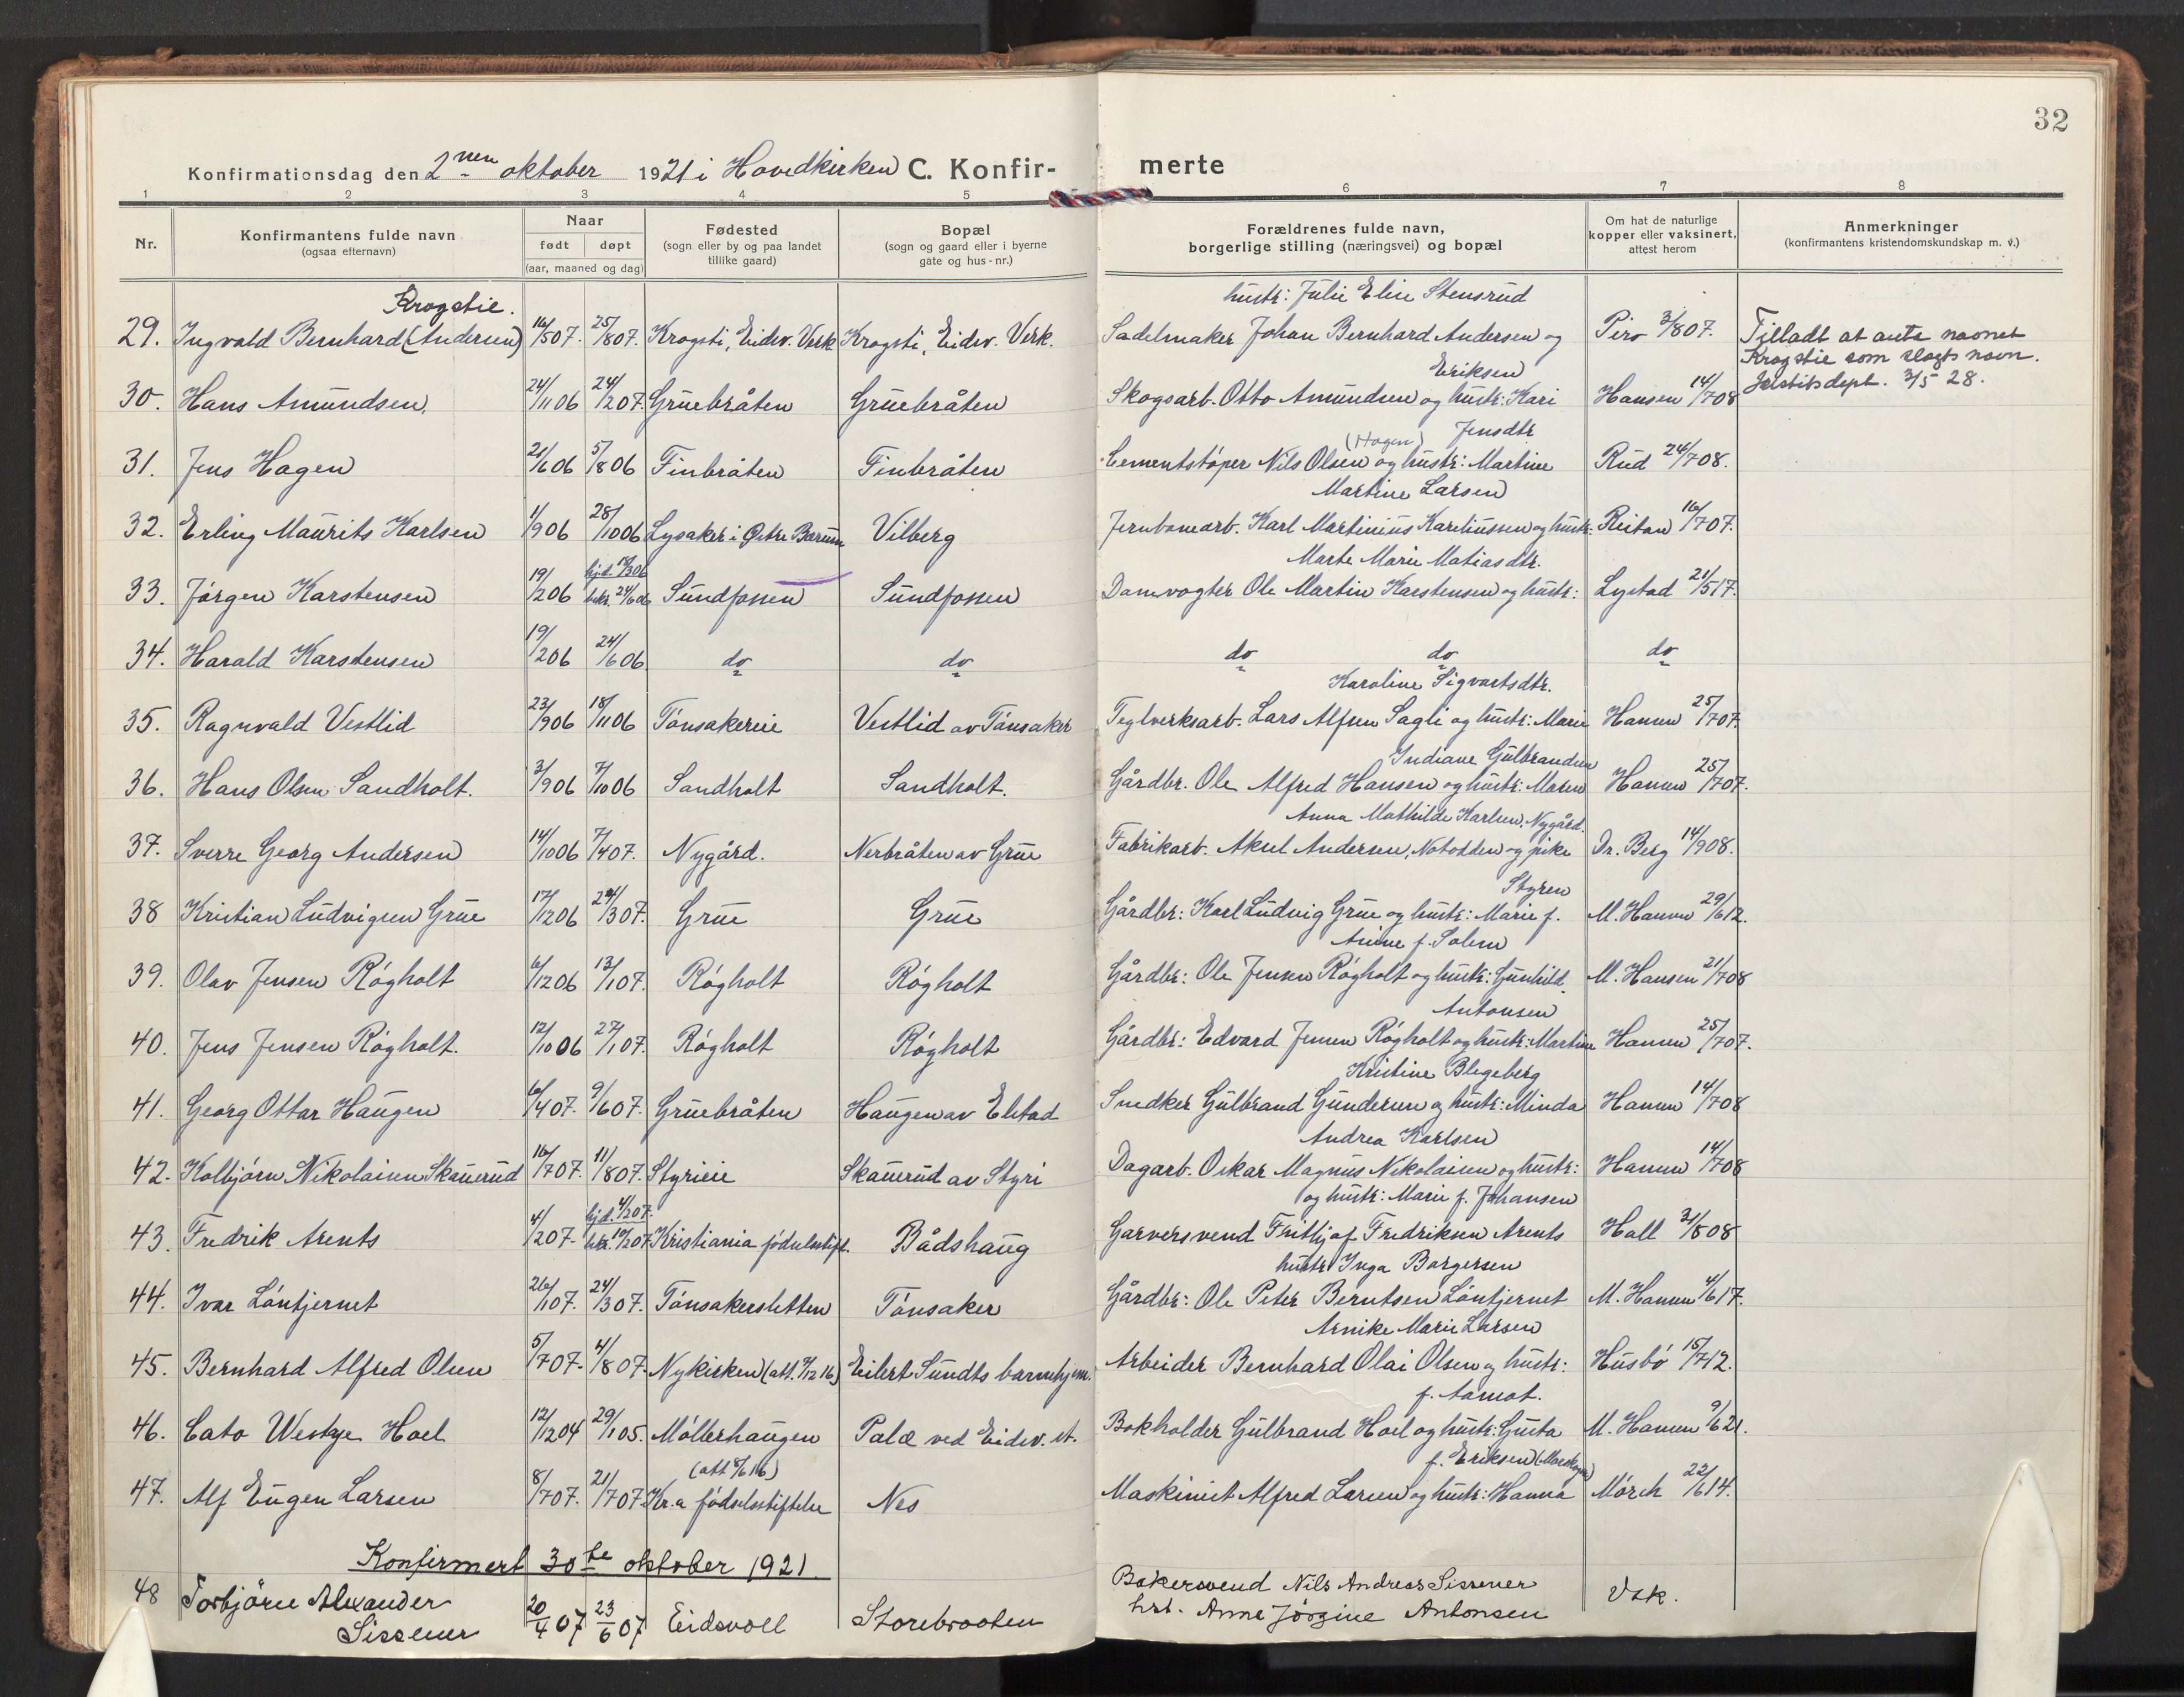 32
Konfirmationsdag den 2nen oktober 1921 i Hovedkirken C. Konfir-merte
1 2 3 4 5 6 7 8
Nr.
Konfirmantens fulde navn
(ogsaa efternavn)
Naar
født døpt
(aar, maaned og dag)
Fødested
(sogn eller by og paa landet
tillike gaard)
Bopæl
(sogn og gaard eller i byerne
gate og hus-nr.)
Forældrenes fulde navn,
borgerlige stilling (næringsvei) og bopæl
Om hat de naturlige
kopper eller vaksinert,
attest herom
Anmerkninger
(konfirmantens kristendomskundskap m. v.)
Krogstie. hustr: Julie Elise Stensrud
29. Ingvald Bernhard (Andersen) 16/5 07. 25/8 07. Krogsti, Eidsv. Verk Krogsti, Eidsv. Verk. Sadelmaker Johan Bernhard Andersen og Piro 3/8 07. Tilladt at anta navnet
Krogstie som slegtsnavn.
Justitsdept. 3/5 28.
Eriksen
30. Hans Amundsen. 24/11 06 24/2 07. Gruebråten Gruebråten Skogsarb. Otto Amundsen og hustr: Kari Hansen 14/7 08
(Hagen) Jensdtr
31. Jens Hagen 21/6 06 5/8 06 Finbråten Finbråten Cementstøper Nils Olsen og hustr: Martine Rud 24/7 08.
Martine Larsen
32. Erling Maurits Karlsen 1/9 06 28/10 06 Lysaker i Østre Bærum Vilberg Jernbanearb. Karl Martinius Kareliussen og hustr: Reitan 16/7 07.
hjd. 17/3 06 Marte Marie Matiasdtr.
33. Jørgen Karstensen 19/2 06 bekr. 24/6 06 Sundfossen Sundfossen Damvogter Ole Martin Karstensen og hustr: Lystad 21/5 17.
34. Harald Karstensen 19/2 06 24/6 06 do do do do do
Karoline Sigvartsdtr.
35. Ragnvald Vestlid 23/9 06 18/11 06 Tønsakereie Vestlid av Tønsaker Teglverksarb. Lars Alfsen Sagli og hustr: Marie Hansen 25/7 07.
Indiane Gulbrandsen
36. Hans Olsen Sandholt. 3/9 06 7/10 06 Sandholt Sandholt. Gårdbr. Ole Alfred Hansen og hustr: Maren Hansen 25/7 07.
Anna Mathilde Karlsen, Nygård.
37. Sverre Georg Andersen 14/10 06 7/4 07. Nygård. Nerbråten av Grue Fabrikarb. Aksel Andersen, Notodden og pike Dr. Berg 14/9 08.
Styren
38 Kristian Ludvigsen Grue 17/12 06 24/3 07. Grue Grue Gårdbr: Karl Ludvig Grue og hustr: Marie f. M. Hansen 29/6 12.
Anine f. Solem
39. Olav Jensen Røgholt 6/12 06 13/1 07. Røgholt Røgholt Gårdbr: Ole Jensen Røgholt og hustr: Gunhild M. Hansen 21/7 08
Antonsen
40. Jens Jensen Røgholt. 12/10 06 27/1 07. Røgholt Røgholt Gårdbr: Edvard Jensen Røgholt og hustr: Martine Hansen 25/7 07.
Kristine Blegeberg
41. Georg Ottar Haugen 6/4 07. 9/6 07. Gruebråten Haugen av Elstad Snedker Gulbrand Gundersen og hustr: Minda Hansen 14/7 08
Andrea Karlsen
42. Kolbjørn Nikolaisen Skauerud 16/7 07. 11/8 07. Styrieie Skauerud av Styri Dagarb. Oskar Magnus Nikolaisen og hustr: Hansen 14/7 08
hjd. 4/2 07. og hustr: Marie f. Johansen
43. Fredrik Arents 4/2 07. bekr. 10/2 07. Kristiania fødselsstift. Bådshaug Garversvend Frithjof Fredriksen Arents Hall 31/8 08
hustr Inga Borgersen
44. Ivar Løntjernet 26/1 07. 24/3 07. Tønsakersletten Tønsaker Gårdbr: Ole Peter Berntsen Løntjernet M. Hansen 4/6 17.
Arnike Marie Larsen
45. Bernhard Alfred Olsen 5/7 07. 4/8 07. Nykirken (att. 7/12 16) Eilert Sundts barnehjem. Arbeider Bernhard Olai Olsen og hustr: Husbø 15/7 12.
f. Aamot.
46. Cato Westye Hoel 12/12 04 29/1 05. Møllerhaugen Palæ ved Eidsv. st. Bokholder Gulbrand Hoel og hustr: Gusta M. Hansen 9/6 21.
(att 8/6 16) f. Eriksen
47. Alf Eugen Larsen 8/7 07. 21/7 07. Kr.a fødselsstiftelse Nes Maskinist Alfred Larsen og hustr: Hanna Mørch 22/6 14.
Konfirmert 30te oktober 1921
48 Torbjörn Alexander
Sissener 20/4 07 23/6 07 Eidsvoll Storebrooten Bakersvend Nils Andreas Sissener
hst. Anne Jörgine Antonsen Vak.